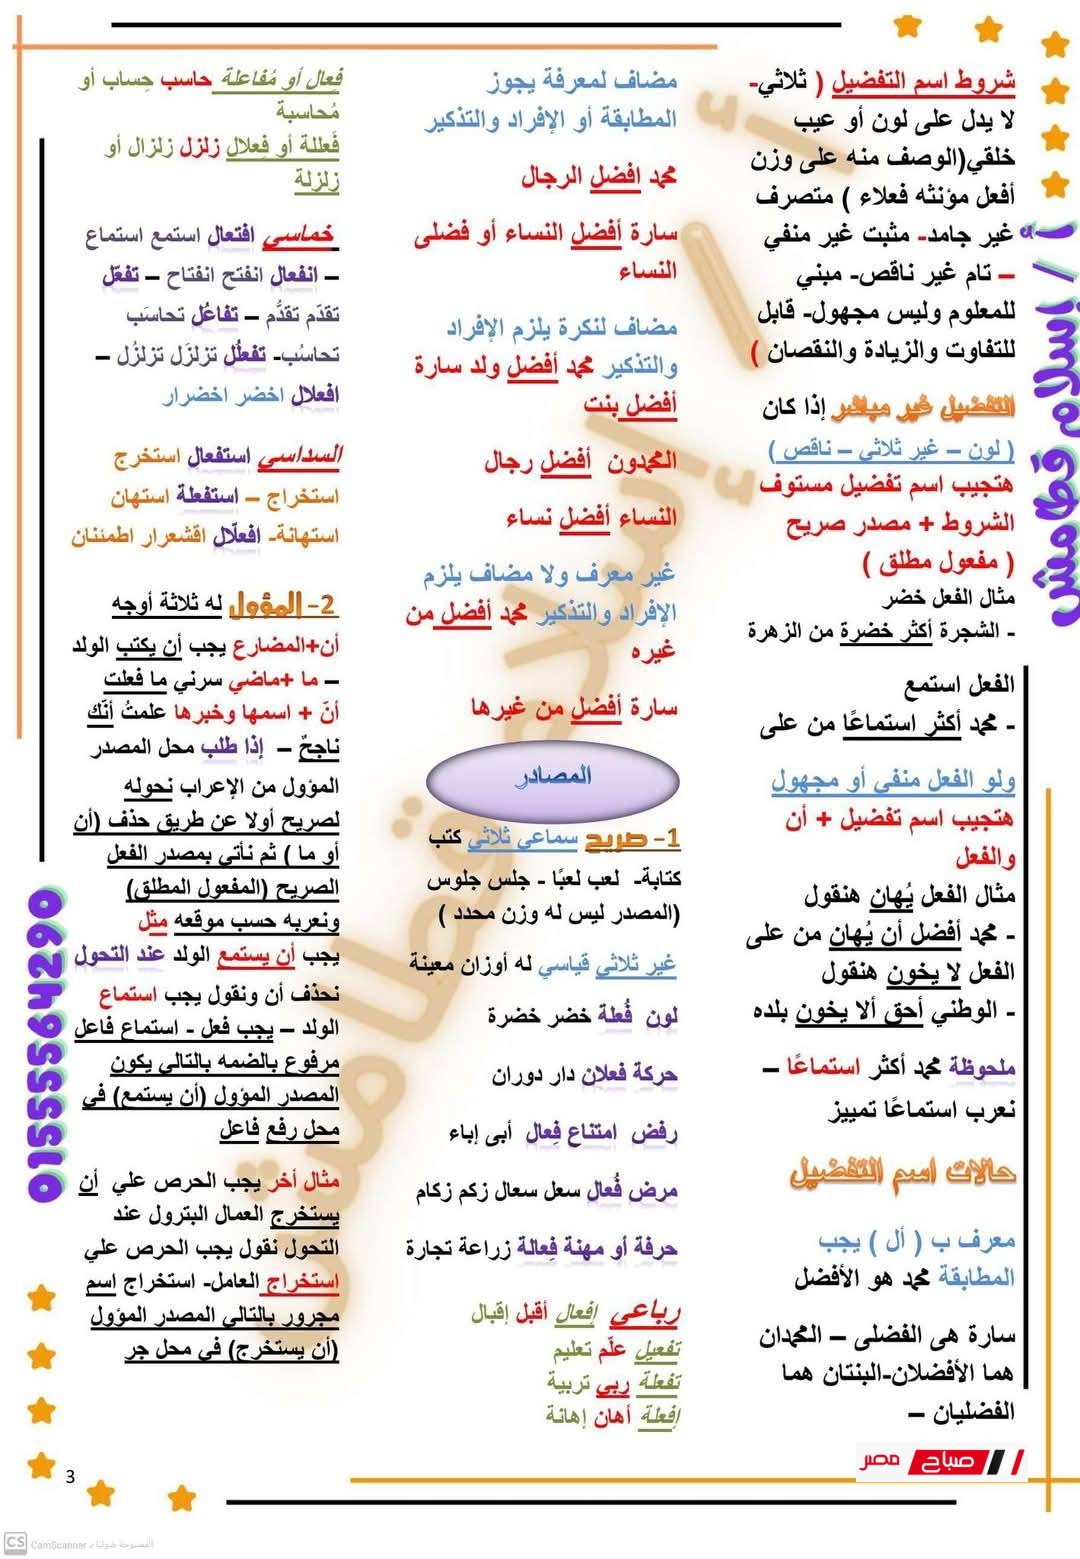 شروط اسم التفضيل ( ثلاثي-
لا يدل على لون أو عيب
خلقي(الوصف منه على وزن
أفعل مؤنثه فعلاء ) متصرف
غير جامد- مثبت غير منفي
– تام غير ناقص- مبني
للمعلوم وليس مجهول- قابل
للتفاوت والزيادة والنقصان )
التفضيل غير مباشر إذا كان
( لون – غير ثلاثي – ناقص )
هتجيب اسم تفضيل مستوف
الشروط + مصدر صريح
( مفعول مطلق )
مثال الفعل خضر
- الشجرة أكثر خضرة من الزهرة
الفعل استمع
- محمد أكثر استماعًا من على
ولو الفعل منفي أو مجهول
هتجيب اسم تفضيل + أن
والفعل
مثال الفعل يُهان هنقول
- محمد أفضل أن يُهان من على
الفعل لا يخون هنقول
- الوطني أحق ألا يخون بلده
ملحوظة محمد أكثر استماعًا –
نعرب استماعًا تمييز
حالات اسم التفضيل
معرف ب ( أل ) يجب
المطابقة محمد هو الأفضل
سارة هى الفضلى – المحمدان
هما الأفضلان-البنتان هما
الفضليان –
مضاف لمعرفة يجوز
المطابقة أو الإفراد والتذكير
محمد افضل الرجال
سارة أفضل النساء أو فضلى
النساء
مضاف لنكرة يلزم الإفراد
والتذكير محمد أفضل ولد سارة
أفضل بنت
المحمدون أفضل رجال
النساء أفضل نساء
غير معرف ولا مضاف يلزم
الإفراد والتذكير محمد أفضل من
غيره
سارة أفضل من غيرها
المصادر
1- صريح سماعي ثلاثي كتب
كتابة- لعب لعبًا - جلس جلوس
(المصدر ليس له وزن محدد )
غير ثلاثي قياسي له أوزان معينة
لون فُعلة خضر خضرة
حركة فعلان دار دوران
رفض امتناع فِعال أبى إباء
مرض فُعال سعل سعال زكم زكام
حرفة أو مهنة فِعالة زراعة تجارة
رباعي إفعال أقبل إقبال
تفعيل علّم تعليم
تفعلة ربي تربية
إفعلة أهان إهانة
فِعال أو مُفاعلة حاسب حِساب أو
مُحاسبة
فَعللة أو فِعلال زلزل زلزال أو
زلزلة
خماسي افتعال استمع استماع
– انفعال انفتح انفتاح – تفعّل
تقدّم تقدُّم – تفاعُل تحاسَب
تحاسُب- تفعلُل تزلزَل تزلزُل –
افعلال اخضر اخضرار
السداسي استفعال استخرج
استخراج – استفعلة استهان
استهانة- افعلّال اقشعرار اطمئنان
2- المؤول له ثلاثة أوجه
أن+المضارع يجب أن يكتب الولد
– ما +ماضي سرني ما فعلت
أنّ + اسمها وخبرها علمتُ أنّك
ناجحٌ – إذا طلب محل المصدر
المؤول من الإعراب نحوله
لصريح أولا عن طريق حذف (أن
أو ما ) ثم نأتي بمصدر الفعل
الصريح (المفعول المطلق)
ونعربه حسب موقعه مثل
يجب أن يستمع الولد عند التحول
نحذف أن ونقول يجب استماع
الولد – يجب فعل - استماع فاعل
مرفوع بالضمه بالتالي يكون
المصدر المؤول (أن يستمع) في
محل رفع فاعل
مثال أخر يجب الحرص علي أن
يستخرج العمال البترول عند
التحول نقول يجب الحرص علي
استخراج العامل- استخراج اسم
مجرور بالتالي المصدر المؤول
(أن يستخرج) في محل جر
أ / إسلام قطامش
01555564290
أ / إسلام قطامش
3
صباح مصر
CS CamScanner الممسوحة ضوئيا بـ